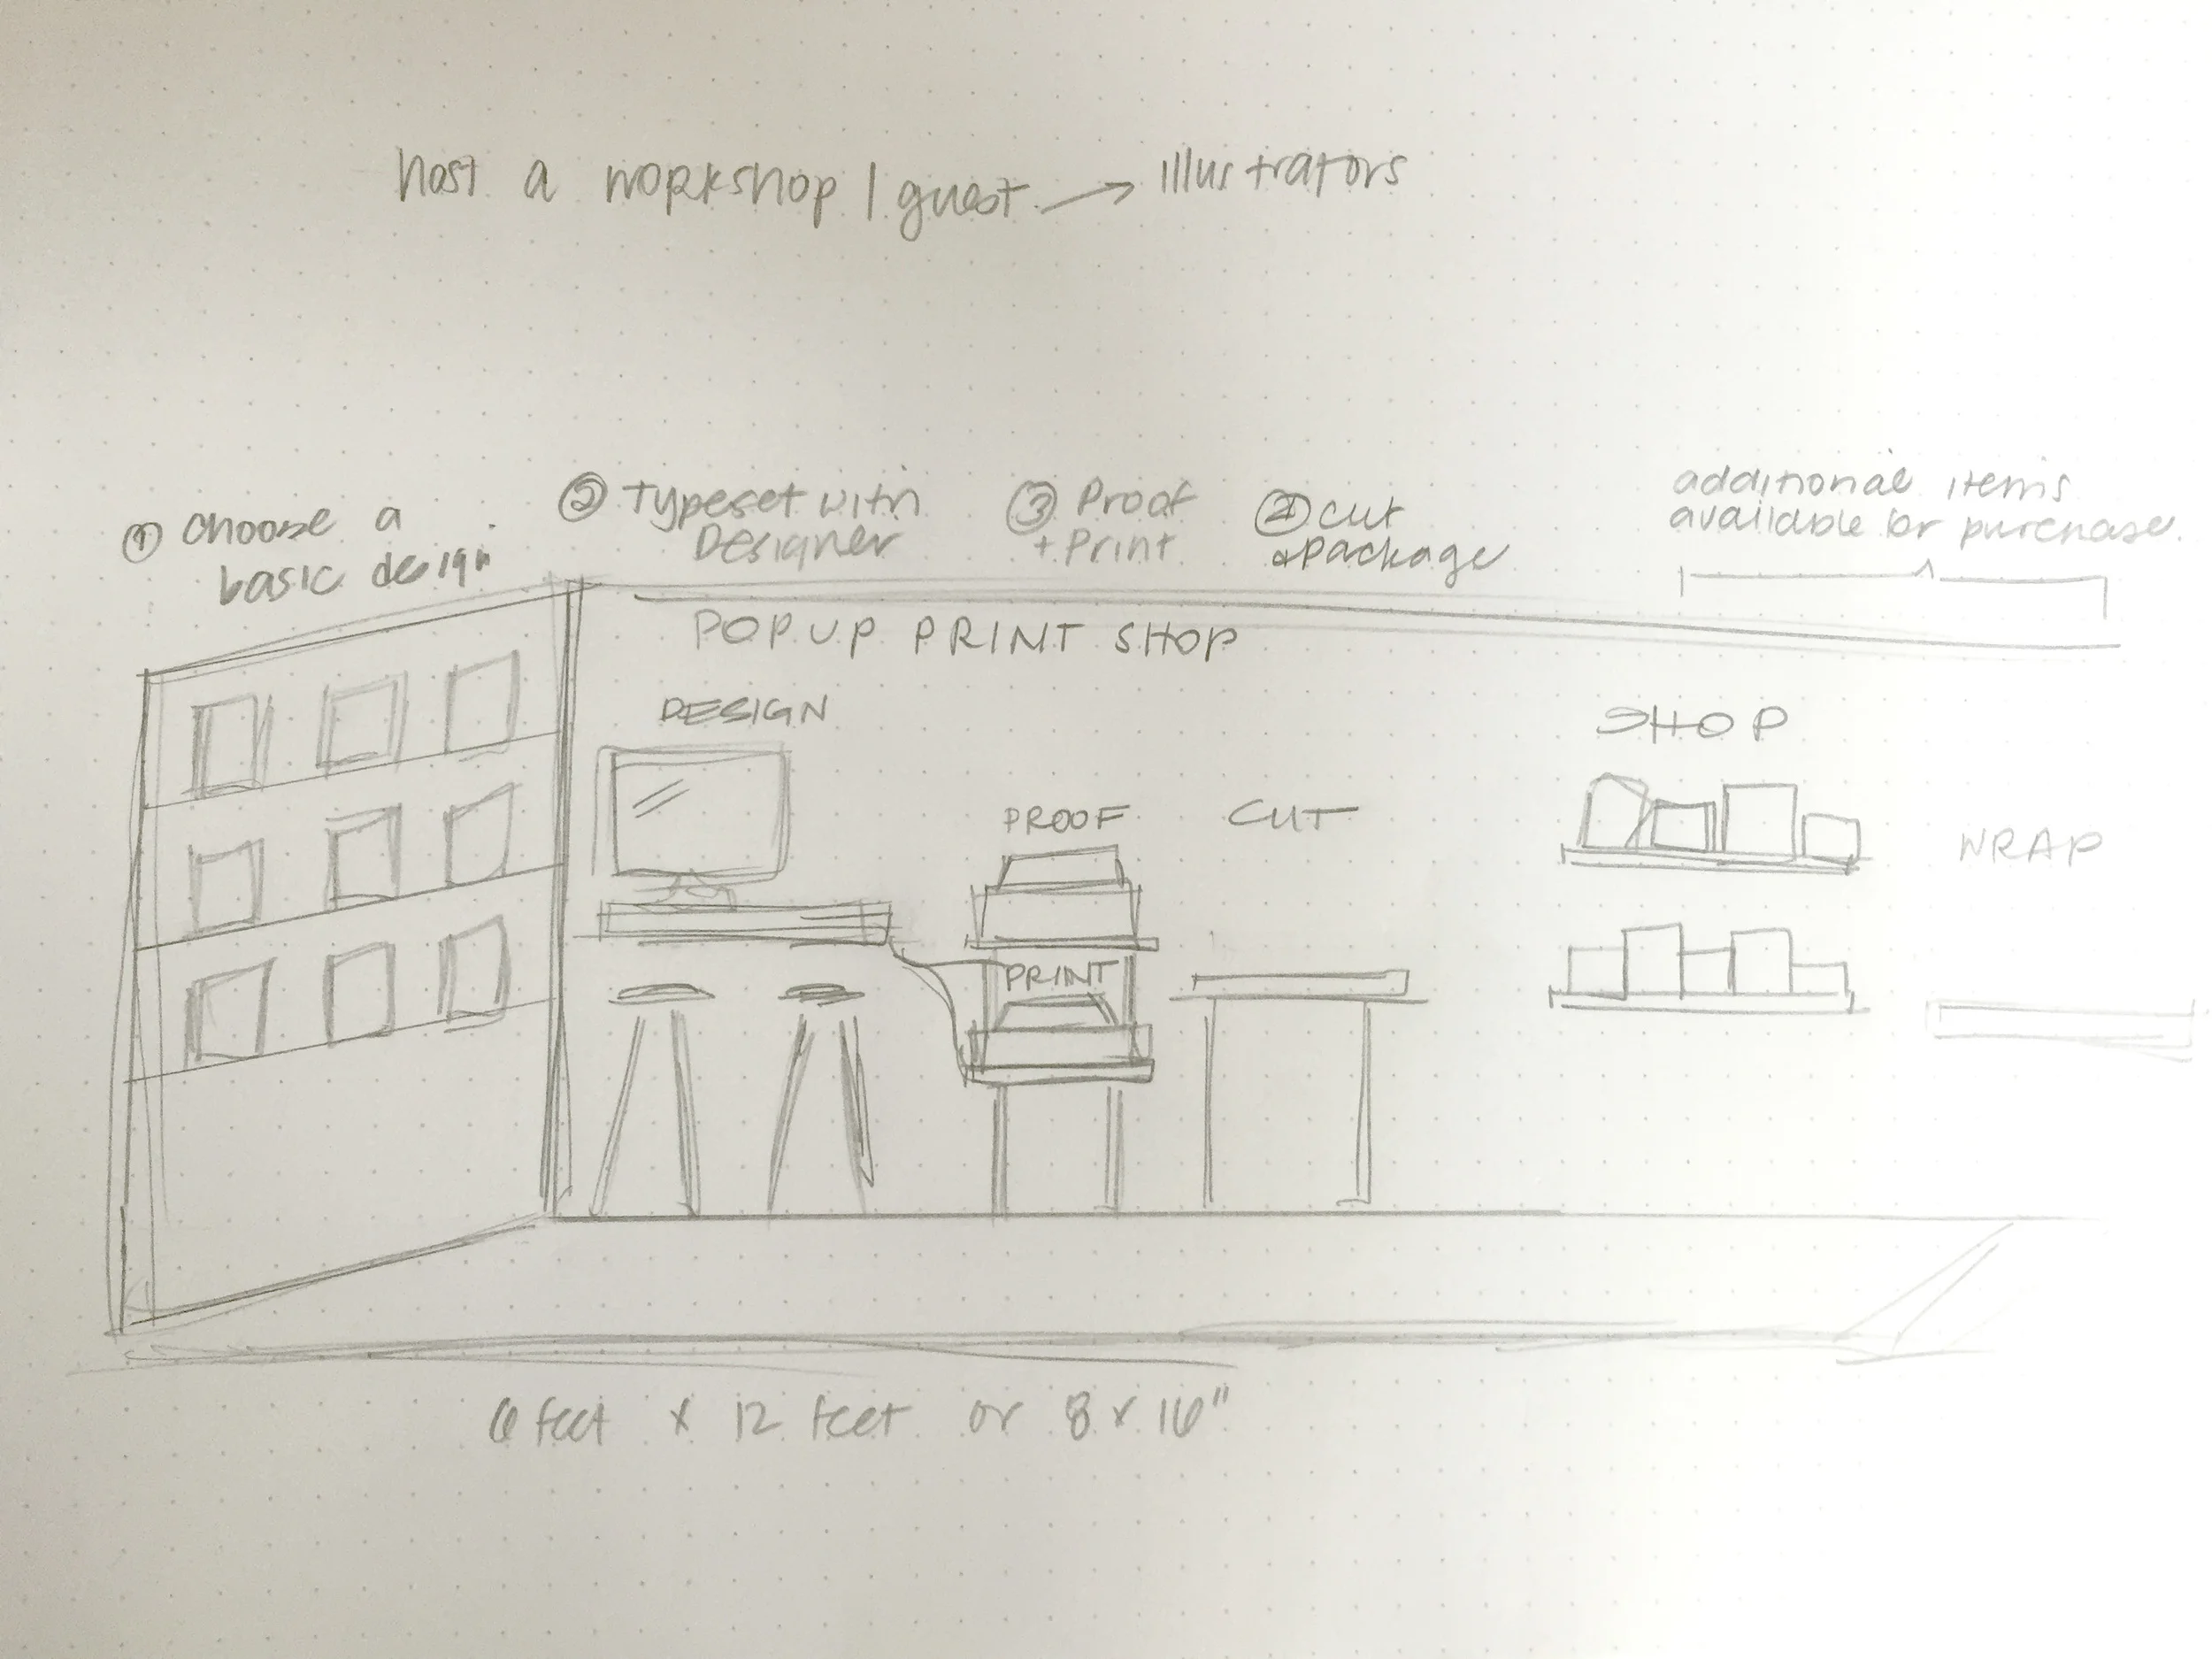 host a workshop / guest → illustrators
① choose a
basic design
② Typeset with
Designer
③ Proof
+ Print
④ cut
& package
additional items
available for purchase.
POPUP PRINT SHOP
DESIGN
PROOF
PRINT
CUT
SHOP
WRAP
6 feet x 12 feet or 8 x 16"